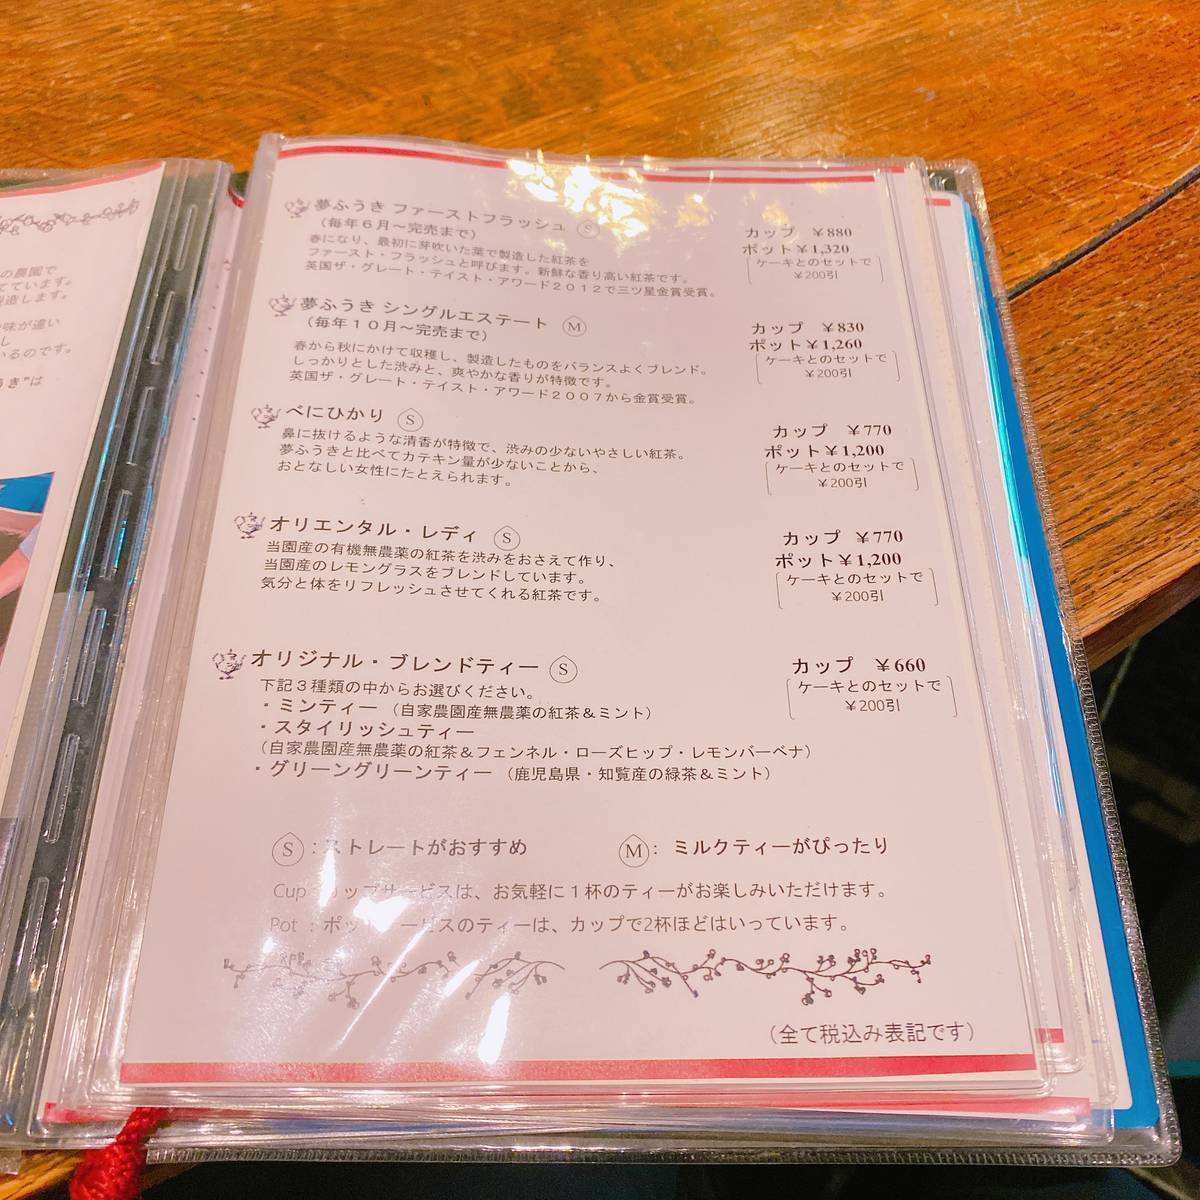 の農園で
てています。
製造します。
味が違い
し
いるのです。
うき"は
夢ふうき ファーストフラッシュ Ⓢ
（毎年６月～完売まで）
春になり、最初に芽吹いた葉で製造した紅茶を
ファースト・フラッシュと呼びます。新鮮な香り高い紅茶です。
英国ザ・グレート・テイスト・アワード２０１２で三ツ星金賞受賞。
カップ ￥880
ポット￥1,320
ケーキとのセットで
￥200引
夢ふうき シングルエステート Ⓜ
（毎年１０月～完売まで）
春から秋にかけて収穫し、製造したものをバランスよくブレンド。
しっかりとした渋みと、爽やかな香りが特徴です。
英国ザ・グレート・テイスト・アワード２００７から金賞受賞。
カップ ￥830
ポット￥1,260
ケーキとのセットで
￥200引
べにひかり Ⓢ
鼻に抜けるような清香が特徴で、渋みの少ないやさしい紅茶。
夢ふうきと比べてカテキン量が少ないことから、
おとなしい女性にたとえられます。
カップ ￥770
ポット￥1,200
ケーキとのセットで
￥200引
オリエンタル・レディ Ⓢ
当園産の有機無農薬の紅茶を渋みをおさえて作り、
当園産のレモングラスをブレンドしています。
気分と体をリフレッシュさせてくれる紅茶です。
カップ ￥770
ポット￥1,200
ケーキとのセットで
￥200引
オリジナル・ブレンドティー Ⓢ
下記３種類の中からお選びください。
・ミンティー（自家農園産無農薬の紅茶＆ミント）
・スタイリッシュティー
（自家農園産無農薬の紅茶＆フェンネル・ローズヒップ・レモンバーベナ）
・グリーングリーンティー（鹿児島県・知覧産の緑茶＆ミント）
カップ ￥660
ケーキとのセットで
￥200引
Ⓢ：ストレートがおすすめ Ⓜ： ミルクティーがぴったり
Cup：カップサービスは、お気軽に１杯のティーがお楽しみいただけます。
Pot ：ポットサービスのティーは、カップで2杯ほどはいっています。
（全て税込み表記です）